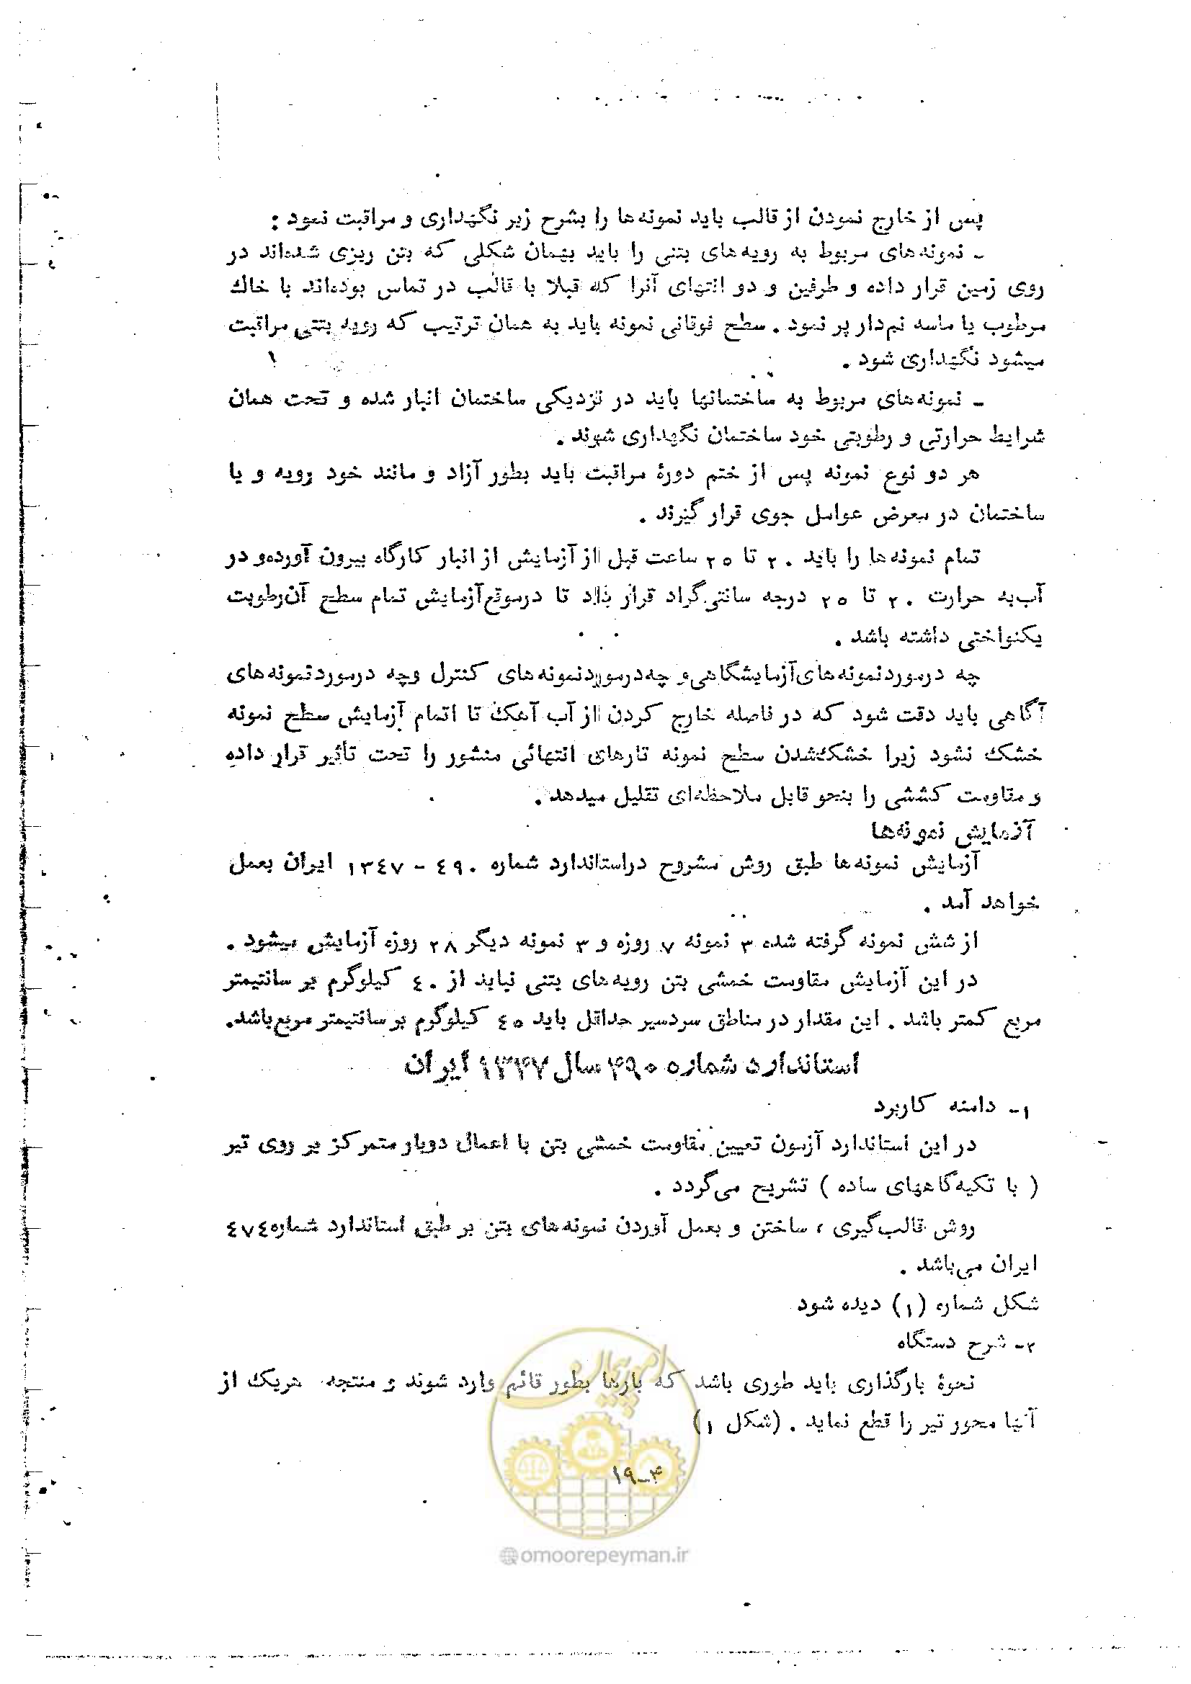 پس از خارج نمودن از قالب باید نمونه‌ها را بشرح زیر نگهداری و مراقبت نمود :
ـ نمونه‌های مربوط به رویه‌های بتنی را باید بهمان شکلی که بتن ریزی شده‌اند در
روی زمین قرار داده و طرفین و دو انتهای آنرا که قبلا با قالب در تماس بوده‌اند با خاك
مرطوب یا ماسه نم‌دار پر نمود . سطح فوقانی نمونه باید به همان ترتیب که رویه بتنی مراقبت
میشود نگهداری شود .
ـ نمونه‌های مربوط به ساختمانها باید در نزدیکی ساختمان انبار شده و تحت همان
شرایط حرارتی و رطوبتی خود ساختمان نگهداری شوند .
هر دو نوع نمونه پس از ختم دورهٔ مراقبت باید بطور آزاد و مانند خود رویه و یا
ساختمان در معرض عوامل جوی قرار گیرند .
تمام نمونه‌ها را باید ۲۰ تا ۲۵ ساعت قبل از آزمایش از انبار کارگاه بیرون آورده‌و در
آب‌به حرارت ۲۰ تا ۲۵ درجه سانتی‌گراد قرار داد تا درموقع‌آزمایش تمام سطح آن‌رطوبت
یکنواختی داشته باشد .
چه درموردنمونه‌های‌آزمایشگاهی‌و چه‌درموردنمونه‌های کنترل وچه درموردنمونه‌های
آگاهی باید دقت شود که در فاصله خارج کردن از آب آهك تا اتمام آزمایش سطح نمونه
خشك نشود زیرا خشك‌شدن سطح نمونه تارهای انتهائی منشور را تحت تأثیر قرار داده
و مقاومت کششی را بنحو قابل ملاحظه‌ای تقلیل میدهد .
آزمایش نمونه‌ها
آزمایش نمونه‌ها طبق روش مشروح دراستاندارد شماره ۴۹۰ - ۱۳۴۷ ایران بعمل
خواهد آمد .
از شش نمونه گرفته شده ۳ نمونه ۷ روزه و ۳ نمونه دیگر ۲۸ روزه آزمایش میشود .
در این آزمایش مقاومت خمشی بتن رویه‌های بتنی نباید از ۴۰ کیلوگرم بر سانتیمتر
مربع کمتر باشد . این مقدار در مناطق سردسیر حداقل باید ۴۵ کیلوگرم بر سانتیمتر مربع‌باشد.
استاندارد شماره ۴۹۰ سال ۱۳۴۷ ایران
۱ـ دامنه کاربرد
در این استاندارد آزمون تعیین مقاومت خمشی بتن با اعمال دوبار متمرکز بر روی تیر
( با تکیه‌گاههای ساده ) تشریح می‌گردد .
روش قالب‌گیری ، ساختن و بعمل آوردن نمونه‌های بتن بر طبق استاندارد شماره۴۷۴
ایران می‌باشد .
شکل شماره (۱) دیده شود
۲ـ شرح دستگاه
نحوهٔ بارگذاری باید طوری باشد که بارها بطور قائم وارد شوند و منتجه هریك از
آنها محور تیر را قطع نماید . (شکل ۱)
امور پیمان
۱۹ـ۴
@omoorepeyman.ir